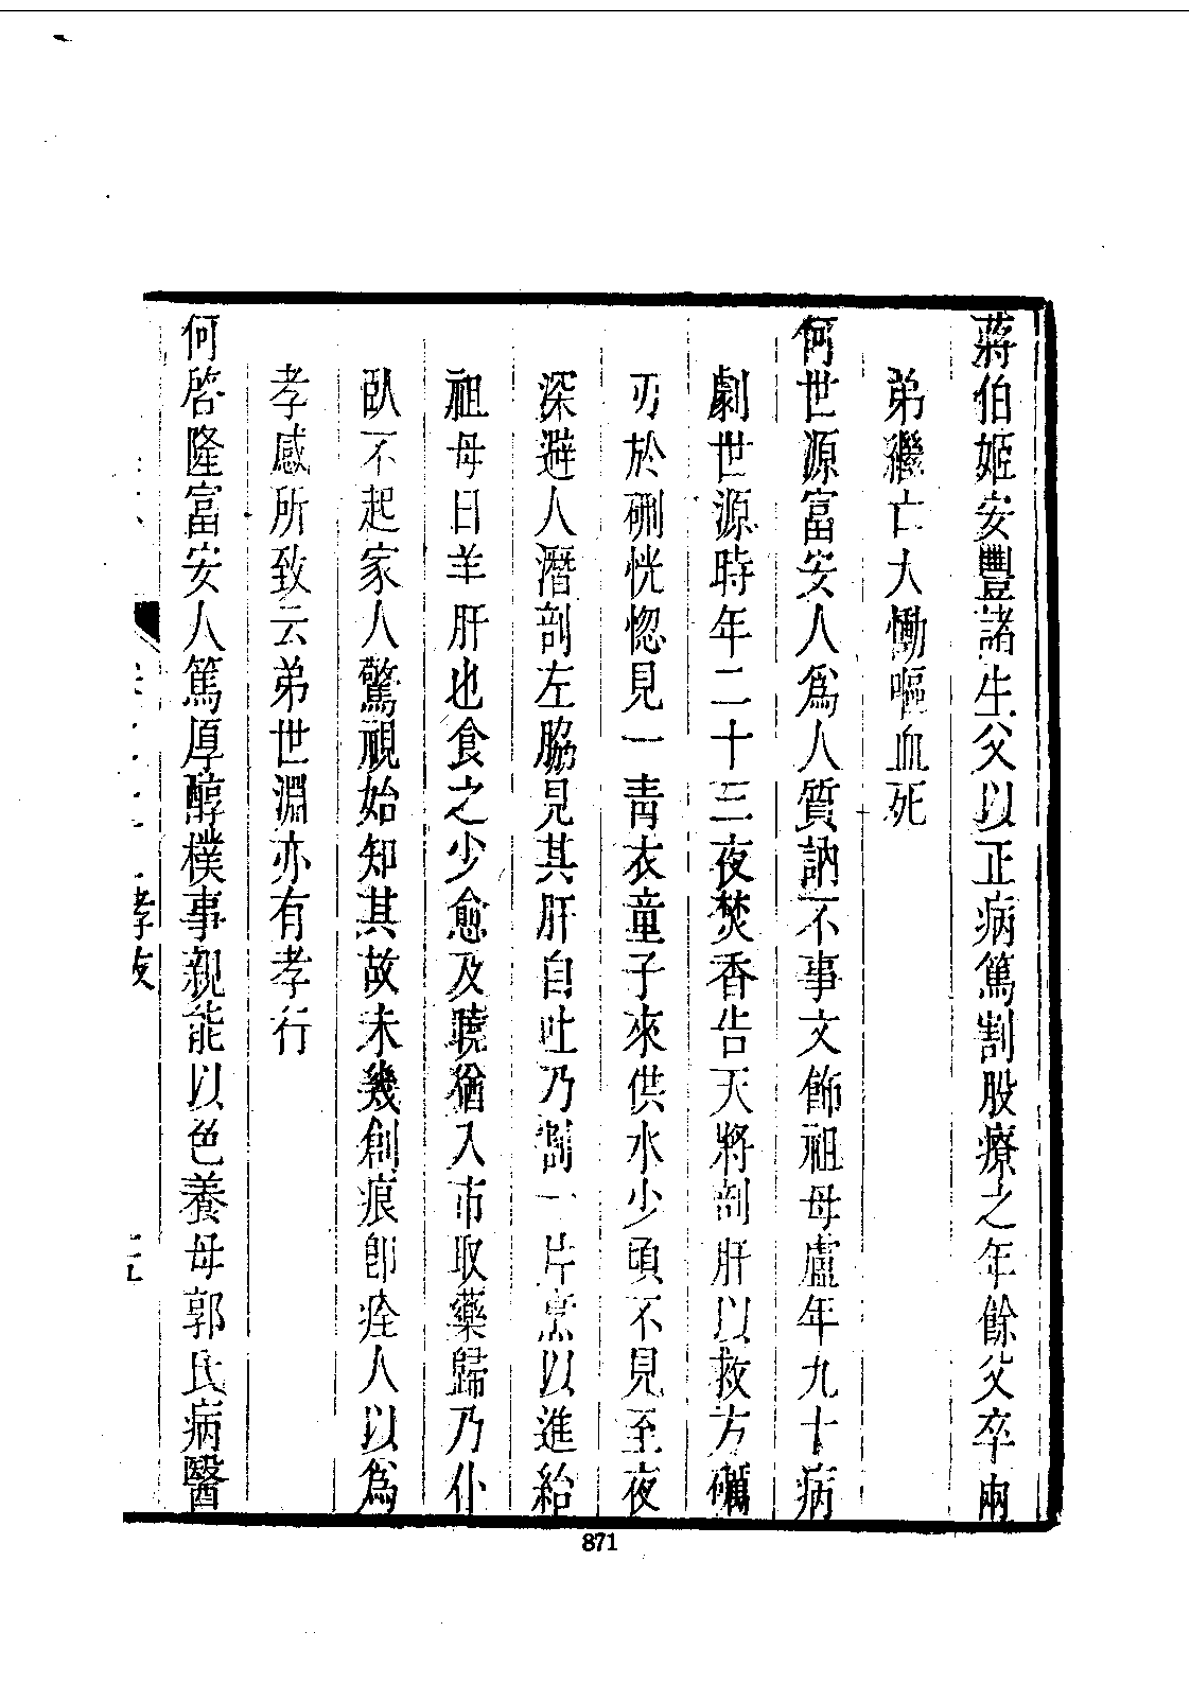 蔣伯姬安豐諸生父以正病篤割股療之年餘父卒兩
弟繼亡大慟嘔血死
何世源富安人為人質訥不事文飾祖母盧年九十病
劇世源時年二十三夜焚香告天將剖肝以救方礪
刃於硎恍惚見一青衣童子來供水少頃不見至夜
深避人潛剖左脇見其肝自吐乃割一片烹以進紿
祖母曰羊肝也食之少愈及曉猶入市取藥歸乃仆
臥不起家人驚視始知其故未幾創痕卽痊人以為
孝感所致云弟世淵亦有孝行
何啓隆富安人篤厚醇樸事親能以色養母郭氏病醫
孝友
871